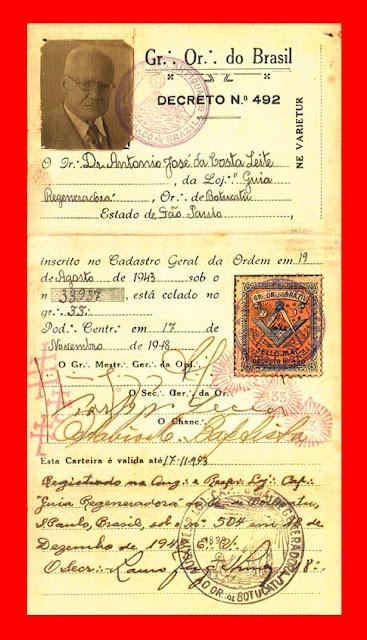 Gr∴ Or∴ do Brasil
DECRETO N.º 492
NE VARIETUR
O Ir∴ Dr. Antonio José da Costa Leite
, da Loj∴ "Guia
Regeneradora" , Or∴ de Botucatú
Estado de São Paulo ,
inscrito no Cadastro Geral da Ordem em 19
de Agosto de 1943 sob o
n 33957, está colado no
gr∴ 33∴
Pod∴ Centr∴ em 17 de
Novembro de 1948
O Gr∴ Mestr∴ Ger∴ da Ord∴
O Sec∴ Ger∴ da Or∴
O Chanc∴
Baptista
Esta Carteira é valida até 17-11-953
Registrado na Aug∴ e Resp∴ Loj∴ Cap∴
"Guia Regeneradora" Botucatu,
S. Paulo, Brasil, sob o nº 504 em 18 de
Dezembro de 194
O Secr∴ 18∴
GR∴ OR∴ DO BRAZIL
SELLO-MAÇ
33
BRAZIL
OR∴ DE BOTUCATU